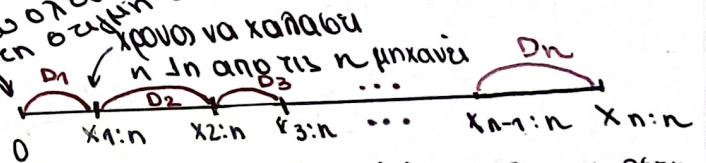 στιγμή
χρόνος να χαλάσει
η 1η από τις n μηχανές
D1 D2 D3 ... Dn
0 X1:n X2:n X3:n ... Xn-1:n Xn:n